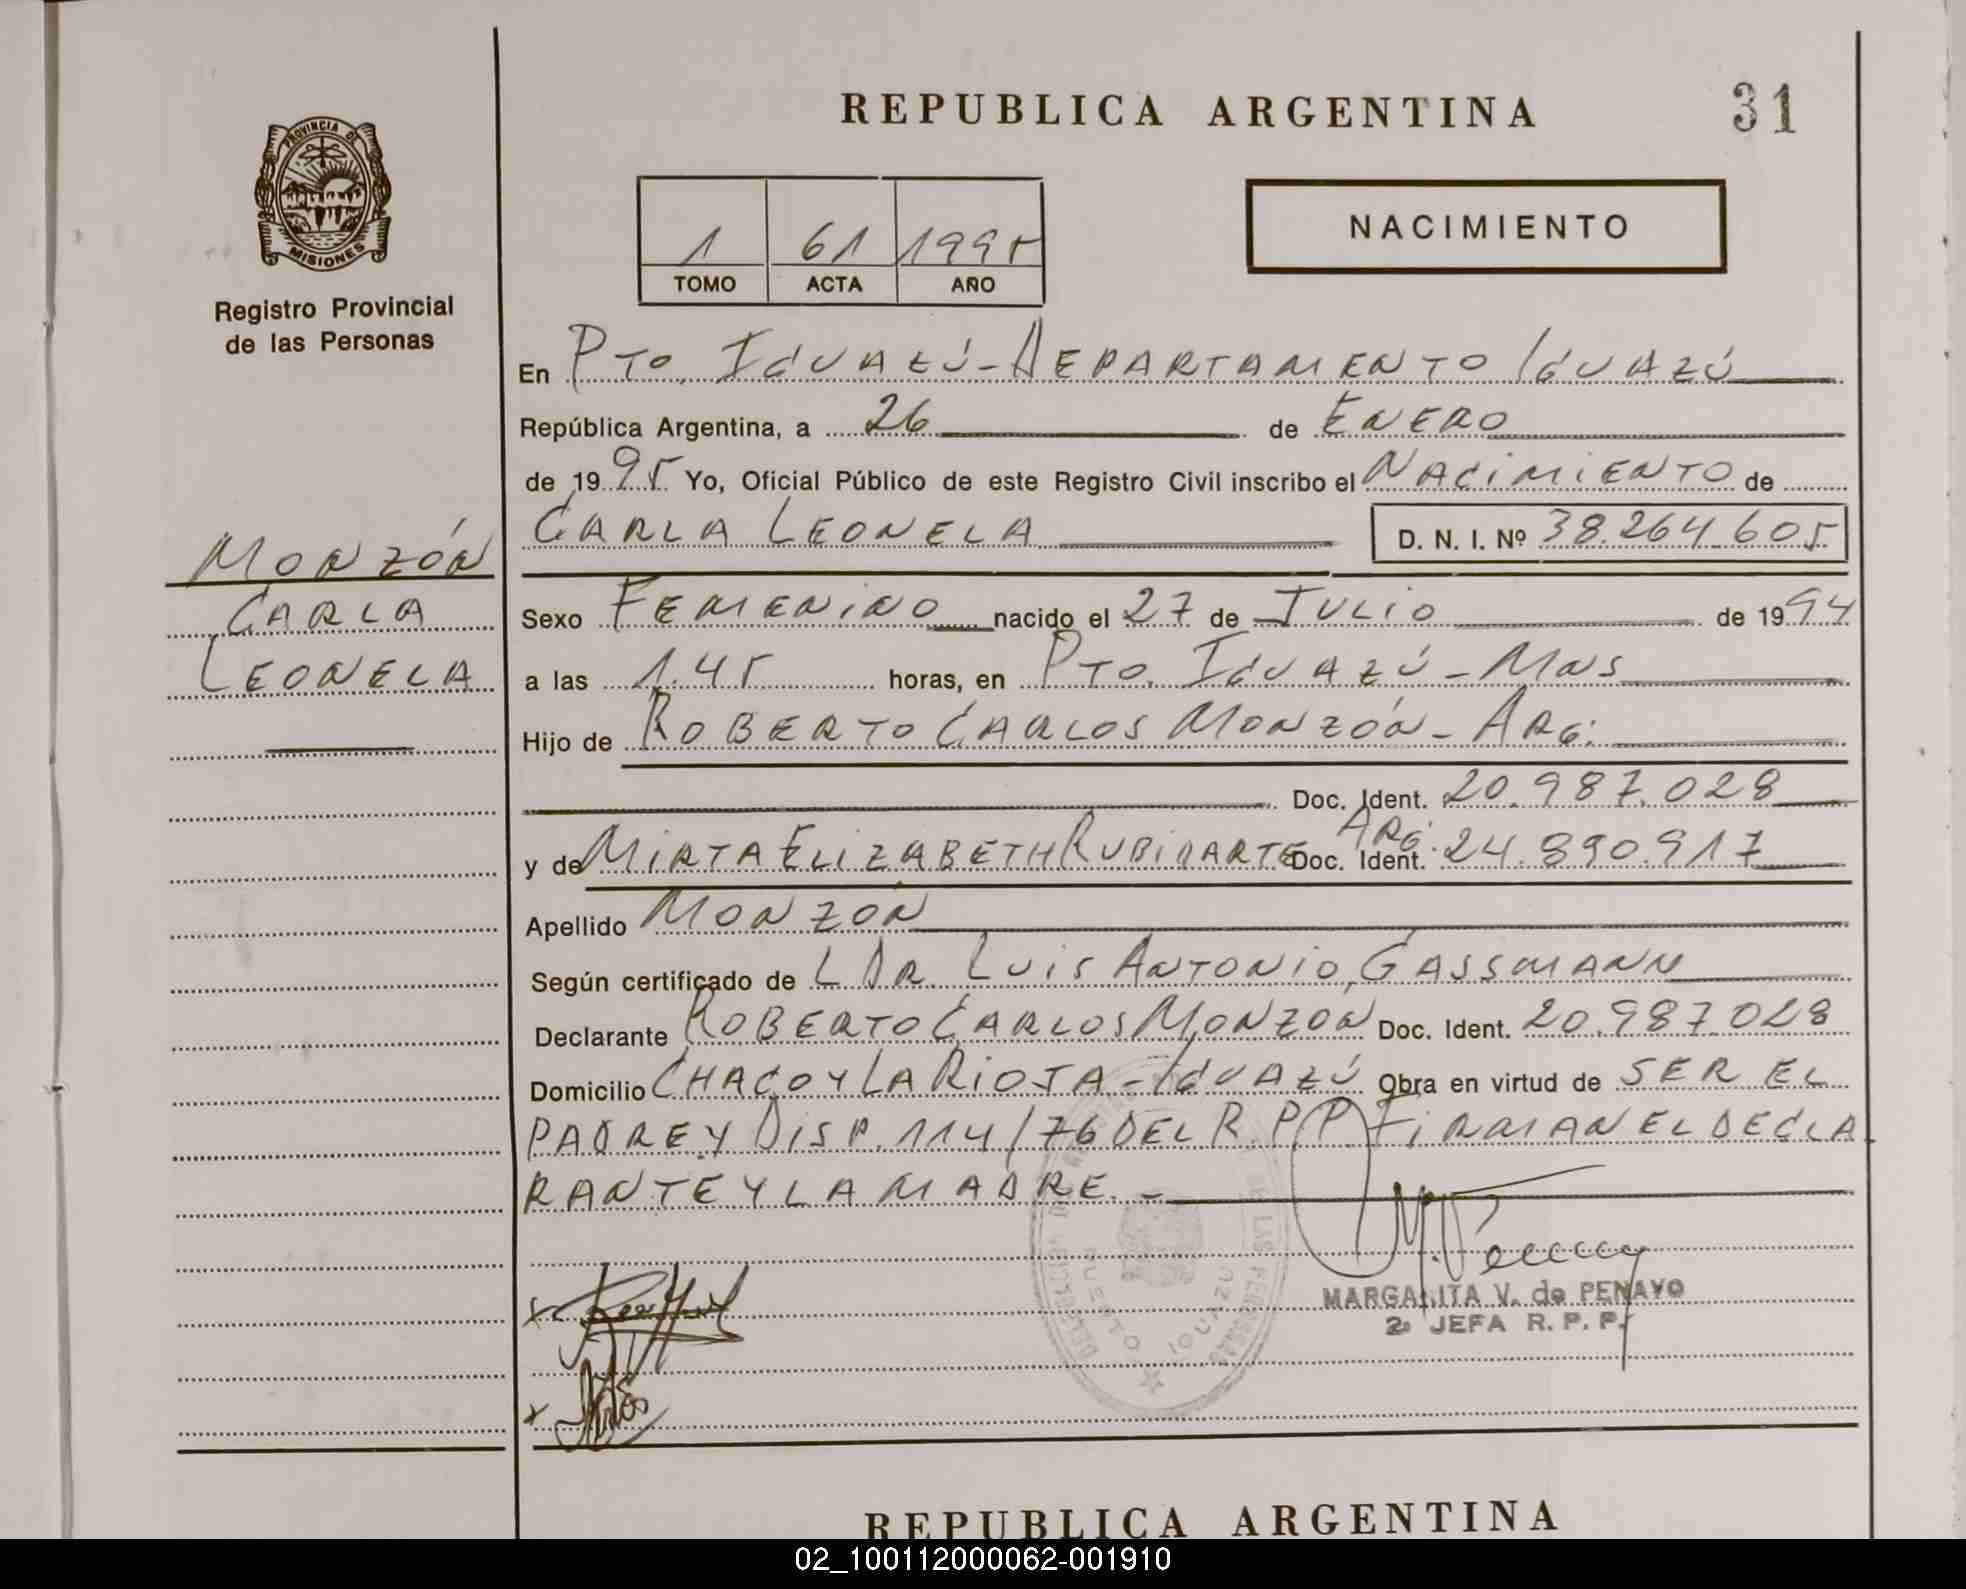 REPUBLICA ARGENTINA
31
PROVINCIA DE
MISIONES
Registro Provincial
de las Personas
1 61 1995
TOMO ACTA AÑO
NACIMIENTO
En PTO. IGUAZÚ - DEPARTAMENTO IGUAZÚ
República Argentina, a 26 de ENERO
de 1995 Yo, Oficial Público de este Registro Civil inscribo el NACIMIENTO de
CARLA LEONELA D. N. I. Nº 38.264.605
MONZÓN
CARLA
LEONELA
Sexo FEMENINO nacido el 27 de JULIO de 1994
a las 1.45 horas, en PTO. IGUAZÚ - MNS
Hijo de ROBERTO CARLOS MONZÓN - ARG.
Doc. Ident. 20.987.028
y de MIRTA ELIZABETH RUBINARTE ARG. Doc. Ident. 24.890.917
Apellido MONZÓN
Según certificado de L DR. LUIS ANTONIO GASSMANN
Declarante ROBERTO CARLOS MONZÓN Doc. Ident. 20.987.028
Domicilio CHACO Y LA RIOJA - IGUAZÚ Obra en virtud de SER EL
PADRE Y DISP. 114/76 DEL R.P.P. FIRMAN EL DECLA
RANTE Y LA MADRE. -
MARGARITA V. de PENAYO
2a JEFA R. P. P.
PUERTO IGUAZU
REPUBLICA ARGENTINA
02_100112000062-001910